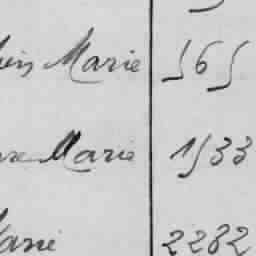 Marie 565
Marie 1533
Marie 2282